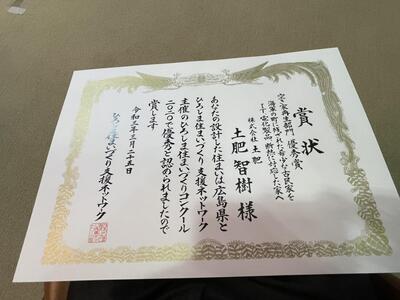 賞状
空き家再生部門 優秀賞
海軍の町に残された希少な古民家を
IT、電化製品、断熱に対応した家へ
株式会社 土肥
土肥智樹 様
あなたの設計した住まいは広島県と
ひろしま住まいづくり支援ネットワーク
主催のひろしま住まいづくりコンクール
二〇二〇で優秀と認められましたので
賞します
令和三年三月二十五日
ひろしま住まいづくり支援ネットワーク